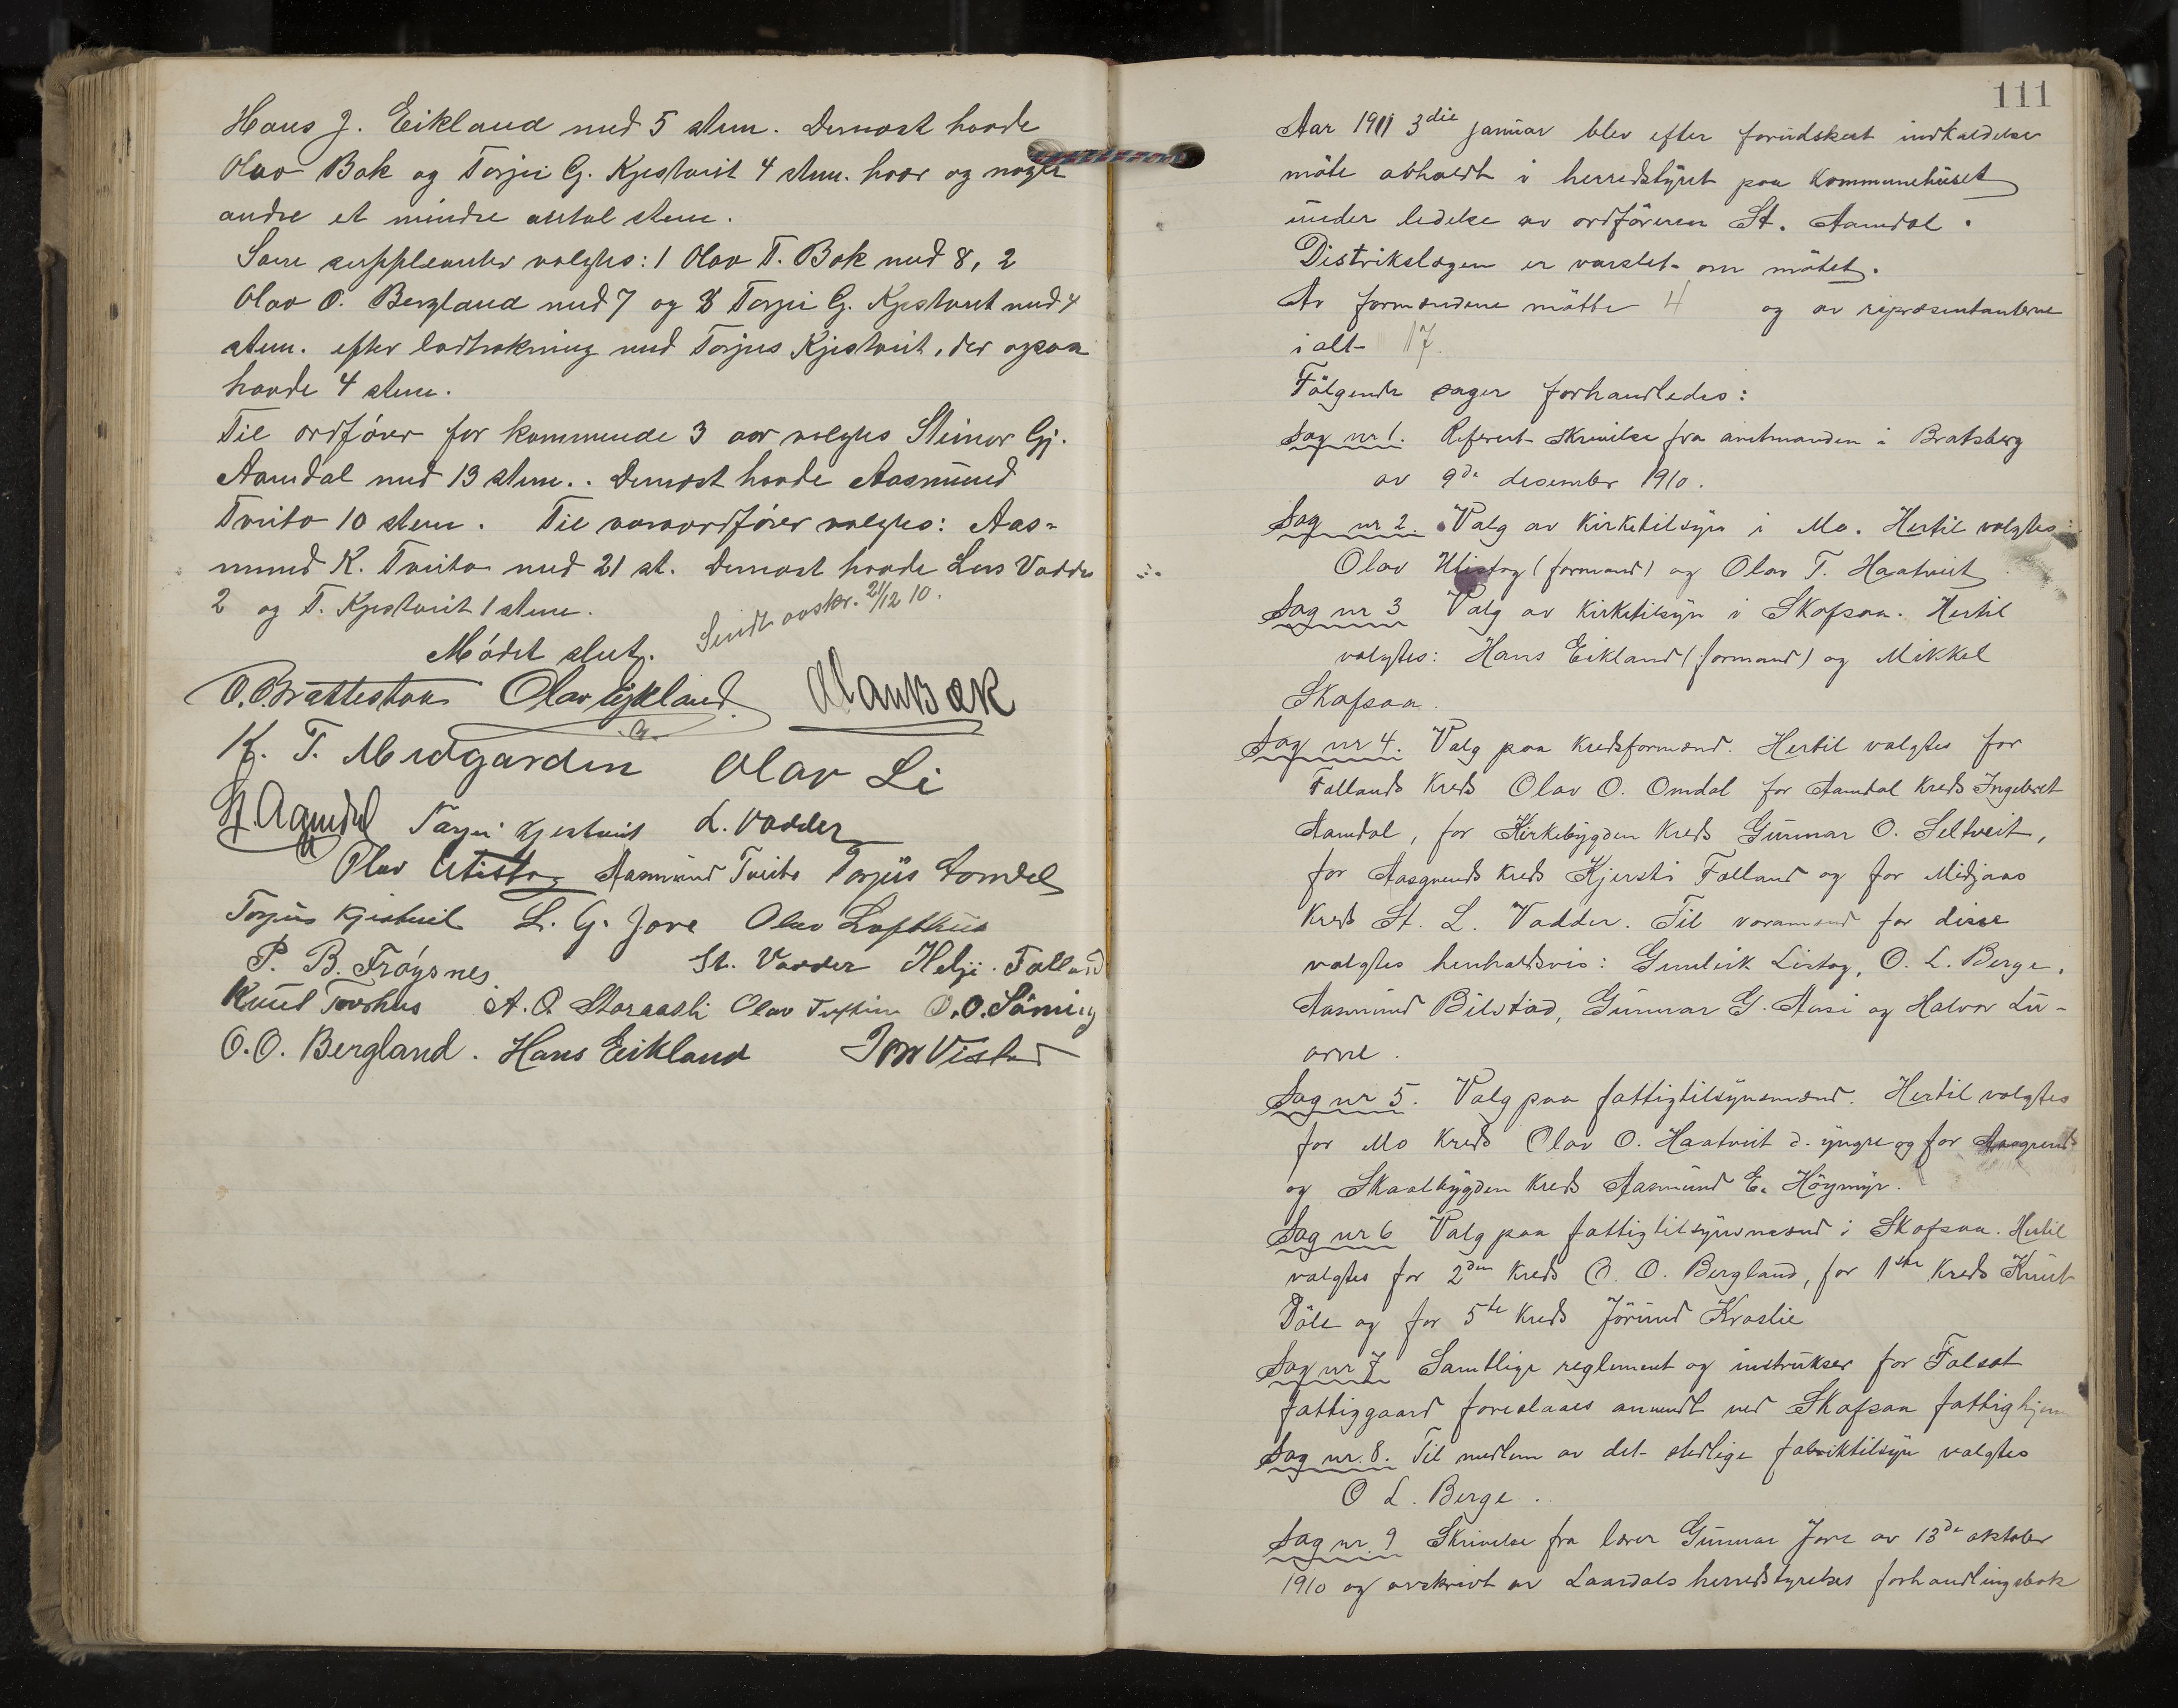 Hans J. Eikland med 5 stem. Dernæst havde
Olav Bak og Torjei G. Kjestveit 4 stem. hver og nogle
andre et mindre antal stem.
Som suppleanter valgtes: 1 Olav T. Bak med 8, 2
Olav O. Bergland med 7 og 3 Torjei G. Kjestveit med 4
stem. efter lodtrækning med Torjus Kjestveit, der ogsaa
havde 4 stem.
Til ordfører for kommende 3 aar valgtes Steinar Gj.
Aamdal med 13 stem.. Dernæst havde Aasmund
Tveito 10 stem. Til varaordfører valgtes: Aas-
mund K. Tveito med 21 st. Dernæst havde Lars Vadder
2 og T. Kjestveit 1 stem.
Sendt avskr. 21/12 10.
Mødet slut.
O. Brattestaa Olav Eikland
K. T. Midgarden Olav Li
St. Aamdal Torjei Kjestveit L. Vadder
Olav Utistog Aasmund Tveito Torjus Aamdal
Torjus Kjestveit L. G. Jore Olav Lofthus
P. B. Frøysnes St. Vadder Helje Falland
Knut Tovshus A. O. Storaasli Olav O. O.
O. O. Bergland. Hans Eikland
111
Aar 1911 3die januar blev efter forudskeet indkaldelse
møte avholdt i herredstyret paa kommunehuset
under ledelse av ordføreren St. Aamdal.
Distrikslægen er varslet om møtet.
Av formændene møtte 4 og av repræsentanterne
ialt 17.
Følgende sager forhandledes:
Sag nr 1. Referert skrivelse fra amtmanden i Bratsberg
av 9de desember 1910.
Sag nr 2. Valg av kirketilsyn i Mo. Hertil valgtes:
Olav Utistog (formand) og Olav T. Haatveit.
Sag nr 3 Valg av kirketilsyn i Skafsaa. Hertil
valgtes: Hans Eikland (formand) og Mikkel
Skafsaa.
Sag nr 4. Valg paa kredsformænd. Hertil valgtes for
Fallands kreds Olav O. Omdal for Aamdal kreds Ingebret
Aamdal, for Kirkebygden kreds Gunnar O. Seltveit,
for Aasgrends kreds Kjersti Falland og for Midjaas
kreds St. L. Vadder. Til varamænd for disse
valgtes henholdsvis: Gunleik Listog, O. L. Berge,
Aasmund Bilstad, Gunnar G. Aasi og Halvor Lu-
arne.
Sag nr 5. Valg paa fattigtilsynsmænd. Hertil valgtes
for Mo kreds Olav O. Haatveit d. yngre og for Aasgrend
og Skaalbygden kreds Aasmund E. Høymyr.
Sag nr 6 Valg paa fattigtilsynsmænd i Skafsaa. Hertil
valgtes for 2den kreds O. O. Bergland, for 1ste kreds Knut
Døle og for 5te kreds Jørund Kraslie
Sag nr 7 Samtlige reglement og instrukser for
fattiggaard foreslaaes anvendt ved Skafsaa fattighjem
Sag nr. 8. Til medlem av det stedlige fabriktilsyn valgtes
O L. Berge.
Sag nr. 9 Skrivelse fra lærer Gunnar Jore av 13de oktober
1910 og avskrivt av Laardals herredstyrelses forhandlingsbok